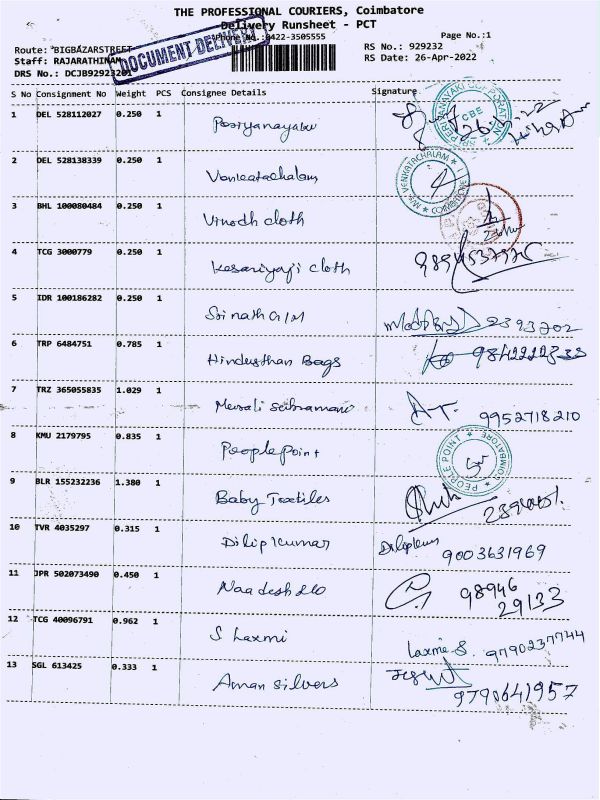 THE PROFESSIONAL COURIERS, Coimbatore
Delivery Runsheet - PCT
Phone No.:0422-3505555
Page No.:1
Route: *BIGBAZARSTREET
RS No.: 929232
Staff: RAJARATHINAM
RS Date: 26-Apr-2022
DRS No.: DCJB92923201
DOCUMENT DELIVERY
S No Consignment No Weight PCS Consignee Details Signature
1 DEL 528112027 0.250 1
CBE
2 DEL 528138339 0.250 1 Venkatachalam
M/s. VENKATACHALAM * COIMBATORE *
3 BHL 100080484 0.250 1 Vinodh cloth
4 TCG 3000779 0.250 1 Kesariyaji cloth
5 IDR 100186282 0.250 1 Sri nath G/M 2393202
6 TRP 6484751 0.785 1 Hindusthan Bags
7 TRZ 365055835 1.029 1 Murali Subramani A.T. 9952718210
8 KMU 2179795 0.835 1 People point
* PEOPLE POINT * COIMBATORE
9 BLR 155232236 1.380 1 Baby Textiles
10 TVR 4035297 0.315 1 Dilip kumar Dilipkumar 9003631969
11 JPR 502073490 0.450 1 98946
29133
12 TCG 40096791 0.962 1 S Laxmi Laxmi S. 9790237744
13 SGL 613425 0.333 1 Aman silvers 9790641957